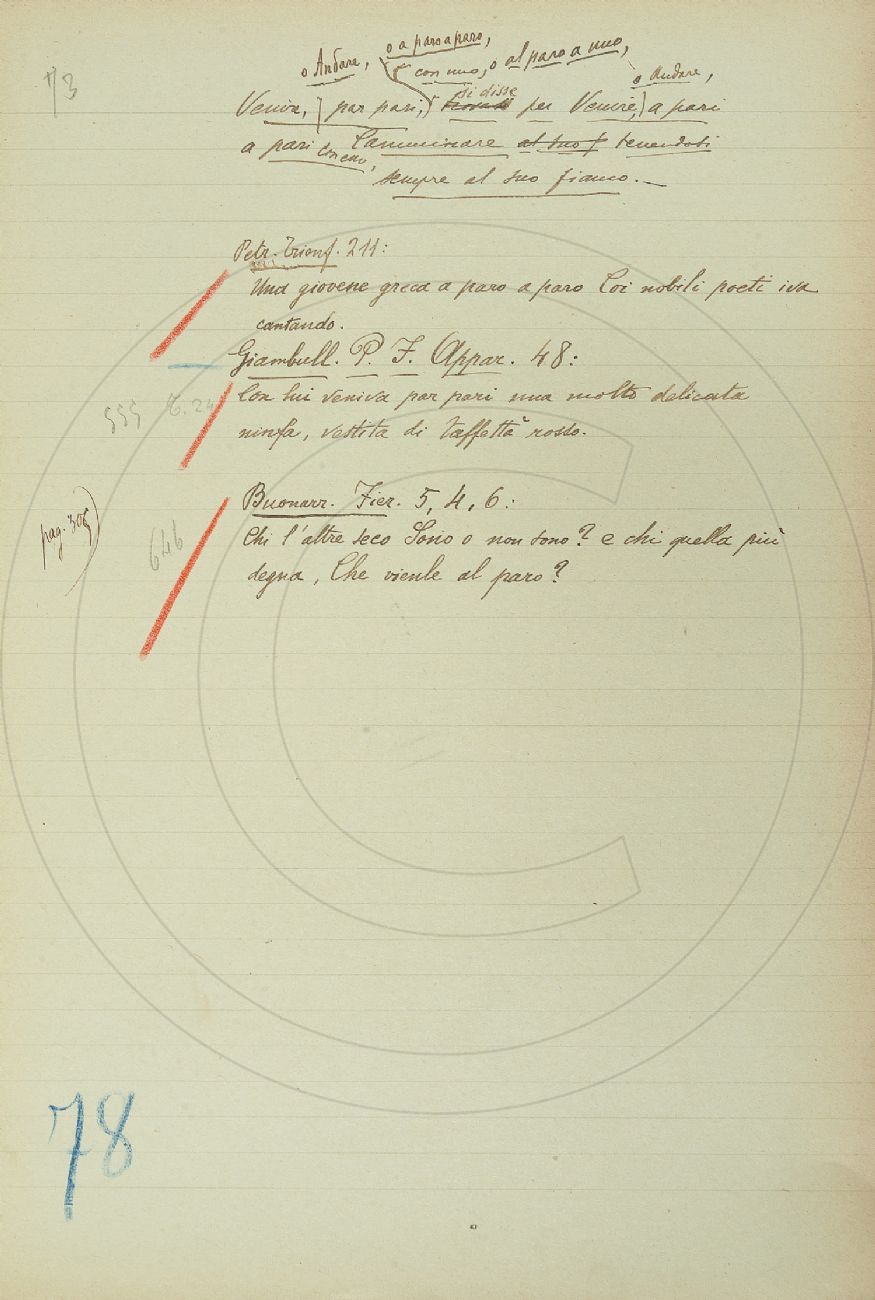 73
o Andare, o a paro a paro,
con uno, o al paro a uno,
si disse o Andare,
Venire, par pari, per Venire, a pari
a pari con uno, Camminare al suo f tenendosi
sempre al suo fianco.—
Petr. Trionf. 211:
Una giovene greca a paro a paro Coi nobili poeti iva
cantando.
Giambull. P. F. Appar. 48:
Con lui veniva par pari una molto delicata
ninfa, vestita di taffettà rosso.
555 t. 24
Buonarr. Fier. 5, 4, 6:
pag. 305
646
Chi l'altre seco Sono o non sono? e chi quella più
degna, Che vienle al paro?
78